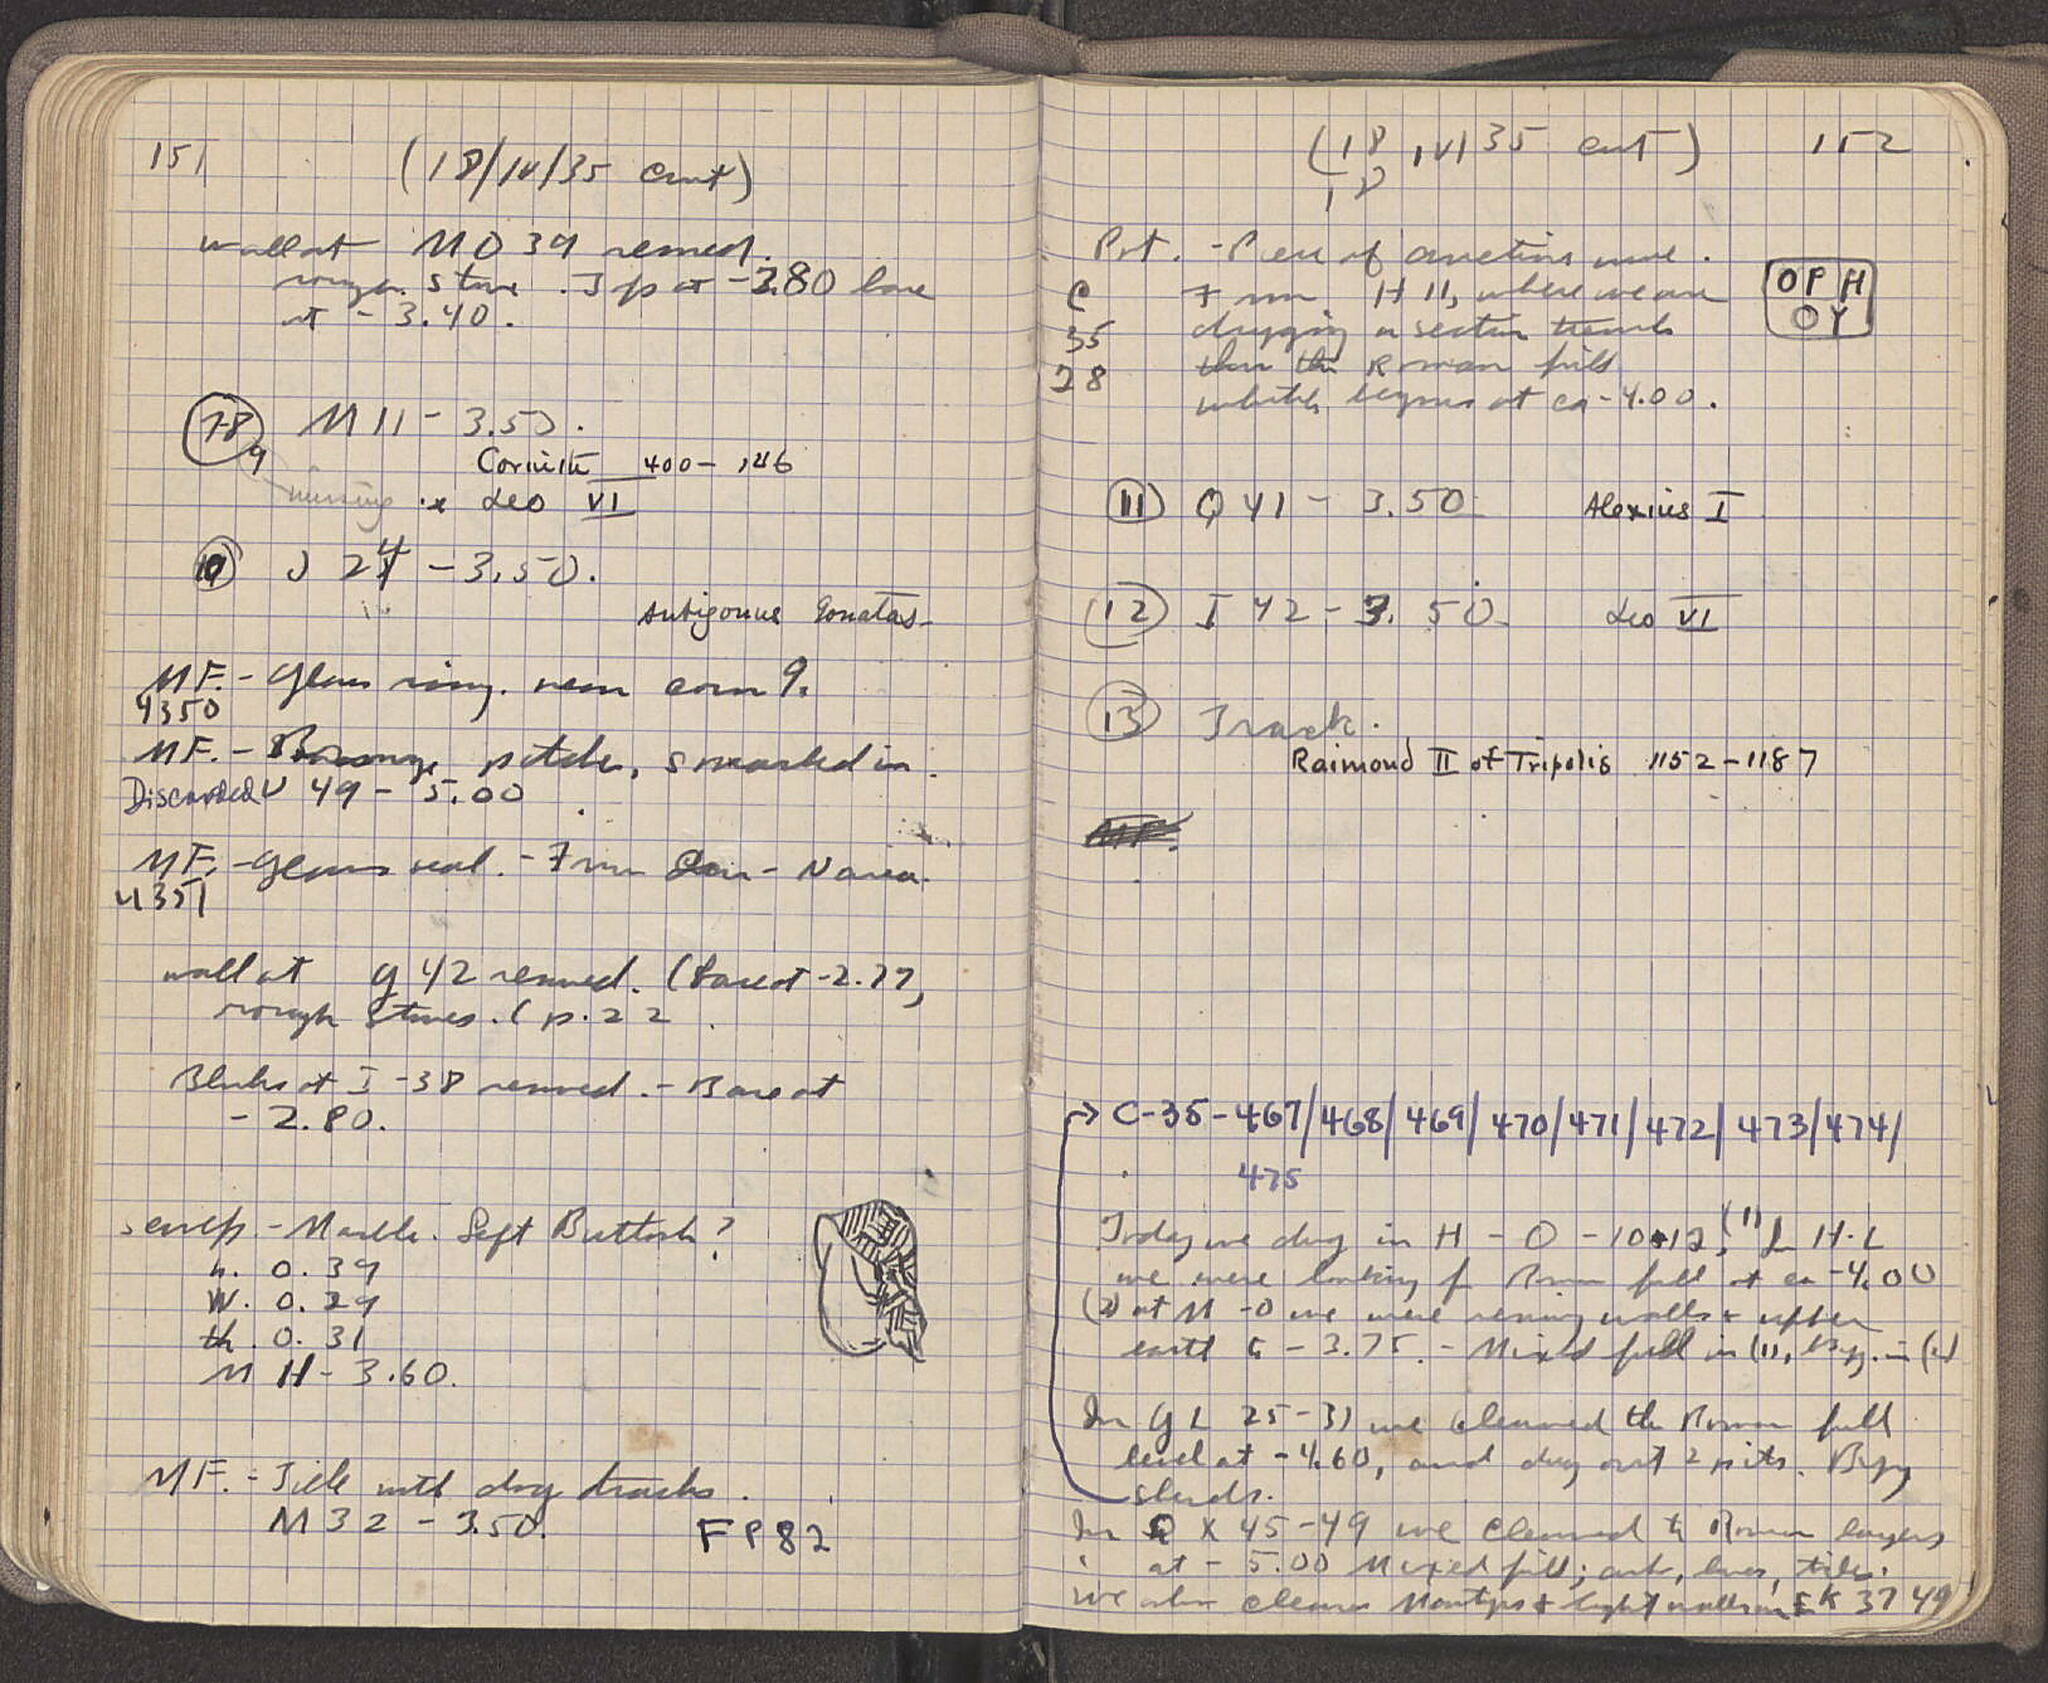 151
(18/IV/35 cont)
wall at M O 39 removed.
rough stone. Top at -2.80 base
at - 3.40.
7-8 M 11 - 3.50.
9
Corinth 400-146
missing Leo VI
10 J 24 - 3.50.
Antigonus Gonatas-
MF. - Glass ring. near coin 9.
4350
MF. - pitcher, smashed in.
Discarded U 49 - 5.00
MF. - Glass seal. - From - N area.
4351
wall at G 42 removed. (base at -2.77,
rough stones. ( p. 22
Blocks at I -38 removed. - Base at
- 2.80.
sculp. - Marble. Left Buttock?
h. 0.39
W. 0.29
th. 0.31
M H - 3.60.
MF. - Tile with dog tracks.
M 32 - 3.50.
FP82
(18 IV 35 cont)
18
152
Pot. - Piece of arretine ware.
C From H 11, where we are
35 digging a section trench
28 thru the Roman fill
which begins at ca - 4.00.
OPH
OY
11 Q 41 - 3.50 Alexius I
12 I 42 - 3.50 Leo VI
13 Track.
Raimond II of Tripolis 1152-1187
MF.
→ C-35-467/468/469/470/471/472/473/474/
475
Today we dug in H - O - 10-12. (1) In H-L
we were looking for Roman fill at ca -4.00
(2) at M -O we were removing walls + upper
earth to - 3.75. - Mixed fill in (1), Byz. in (2)
In G L 25-31 we cleaned the Roman fill
level at - 4.60, and dug out 2 pits. Byz
sherds.
In X 45-49 we cleaned to Roman layers
at - 5.00 Mixed fill; tiles.
We also cleaned + walls in K 37 49